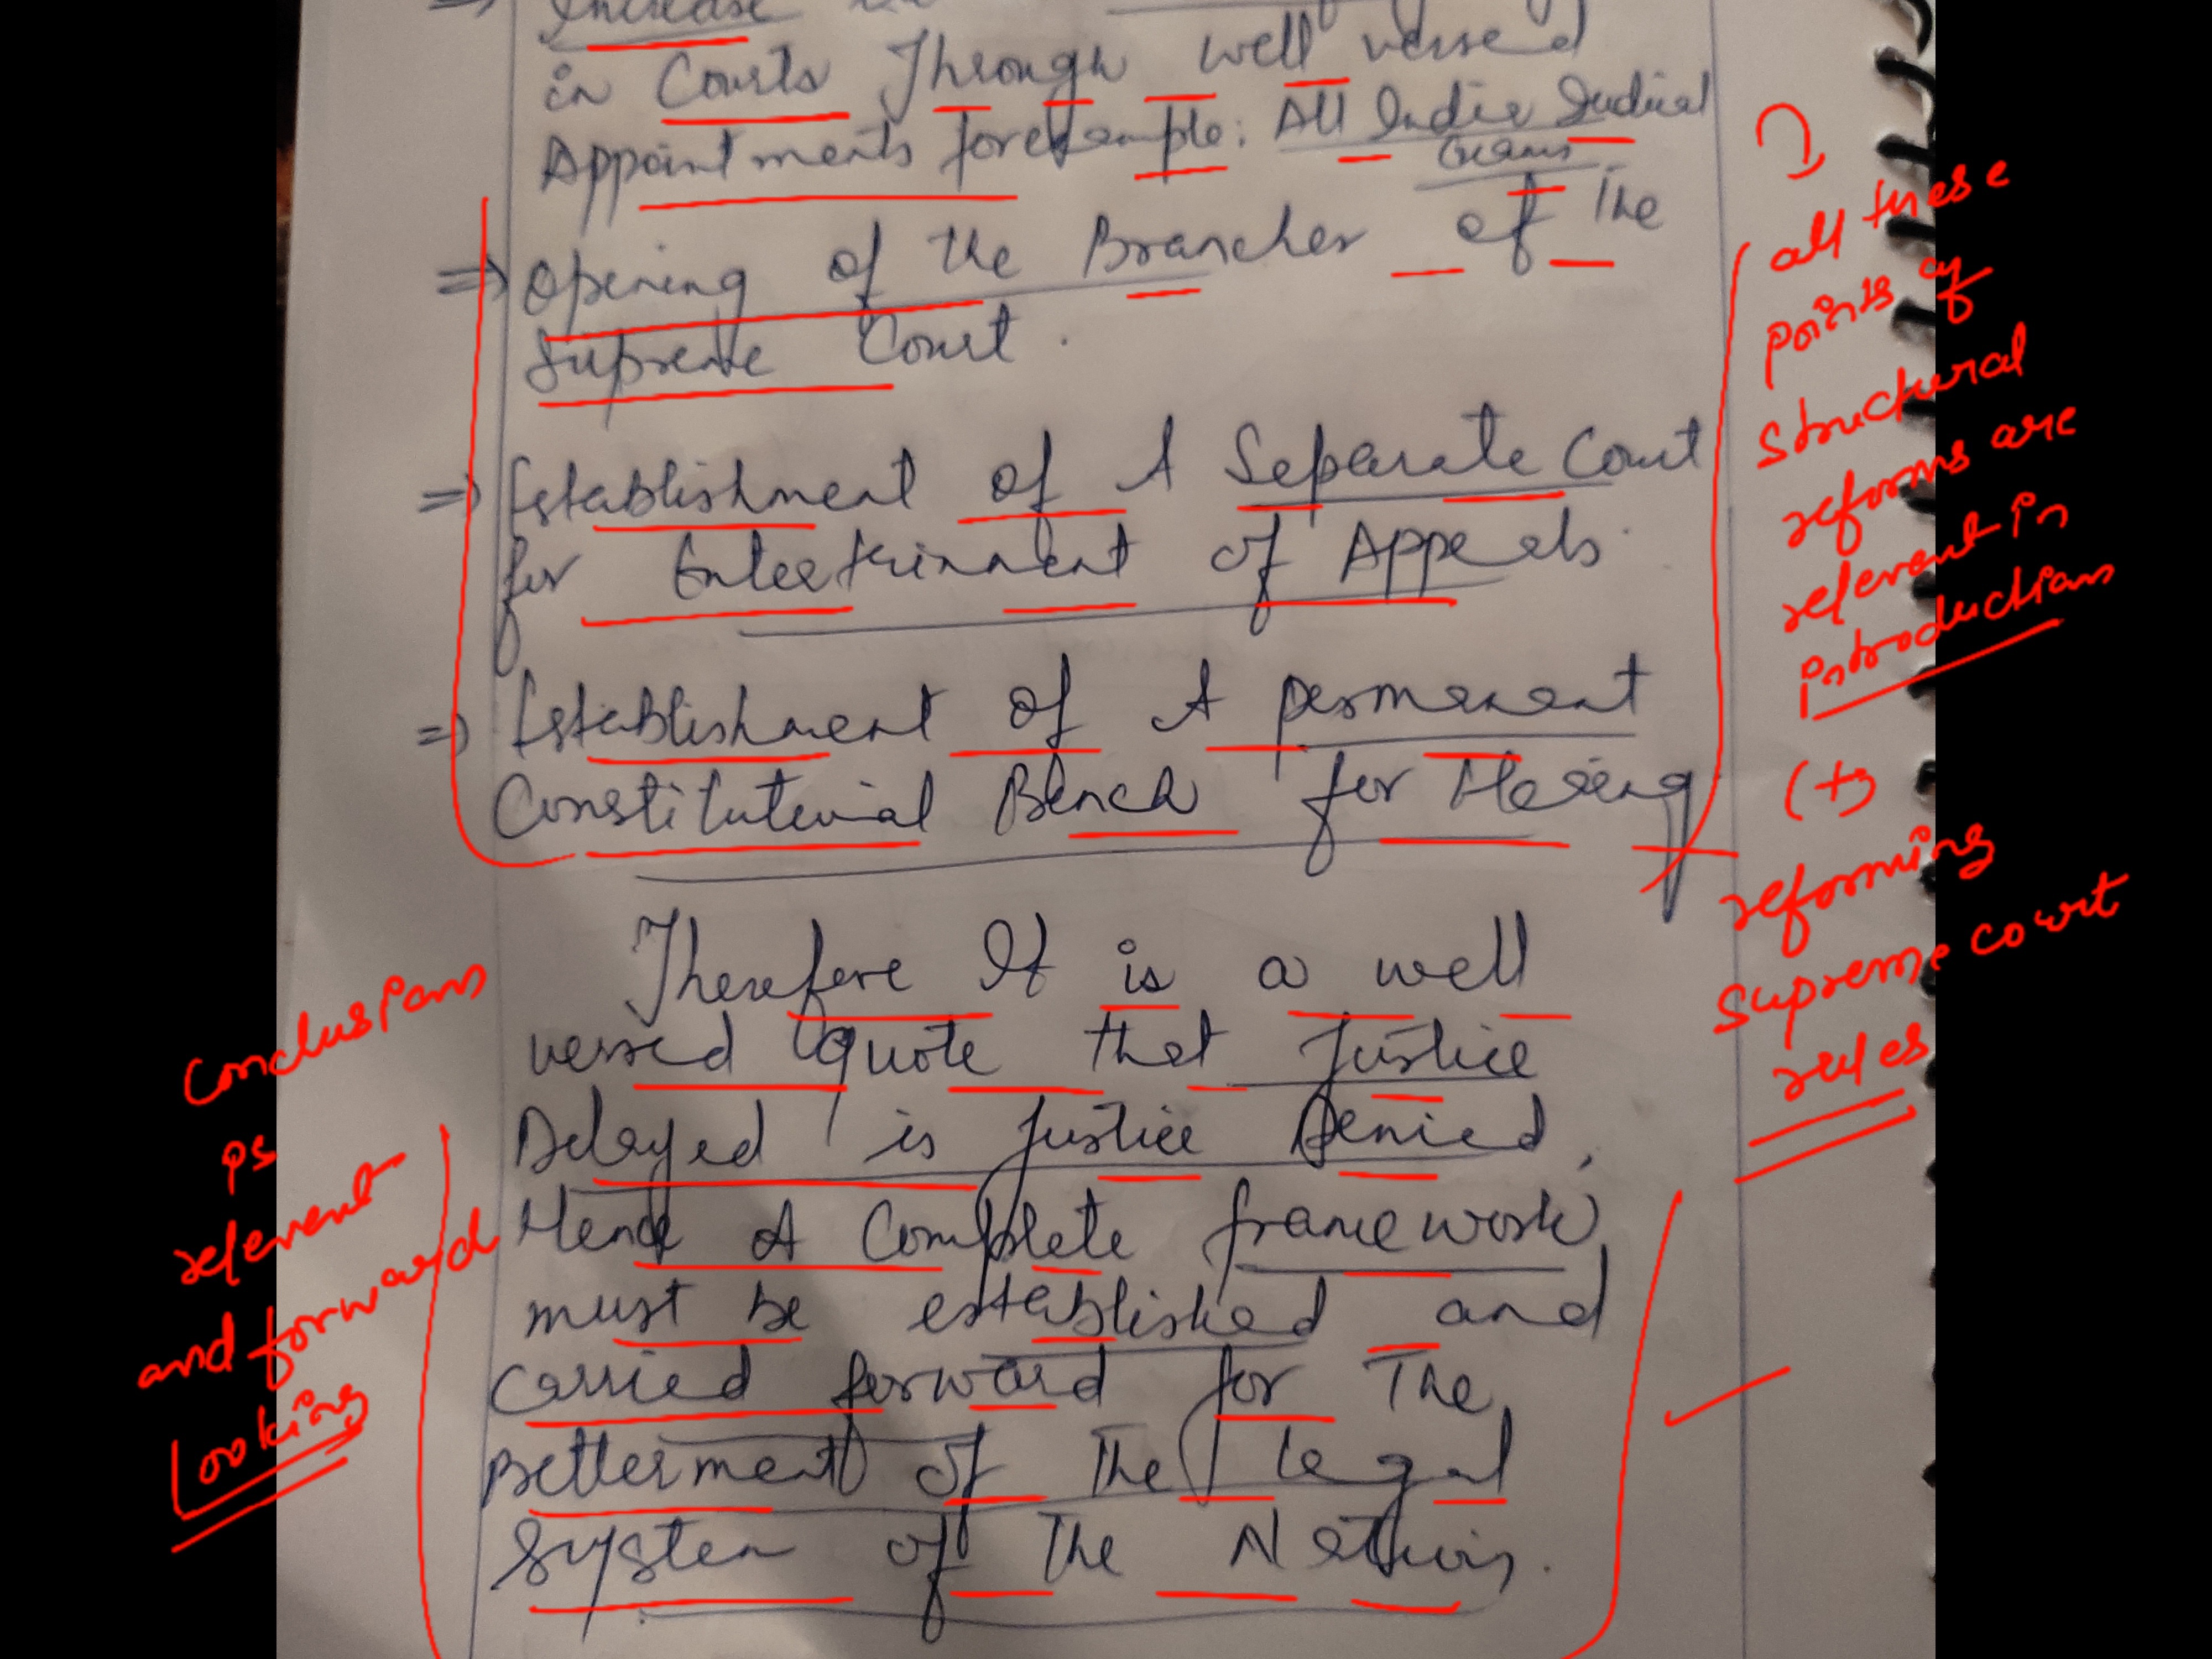 => Increase
in Courts Through well versed
Appointments for example: All India Judicial
Exams.
=> Opening of the Branches of The
Supreme Court.
=> Establishment of A Separate Court
for Entertainment of Appeals.
=> Establishment of A permenent
Constitutional Bench for Hearing
Therefore It is a well
versed quote that Justice
Delayed is Justice Denied,
Hence A Complete framework
must be established and
carried forward for The
Betterment of The legal
System of The Nation.
all these
points of
Structural
reforms are
relevent in
introduction
(+)
reforming
Supreme court
rules
Conclusion
is
relevent
and forward
Looking